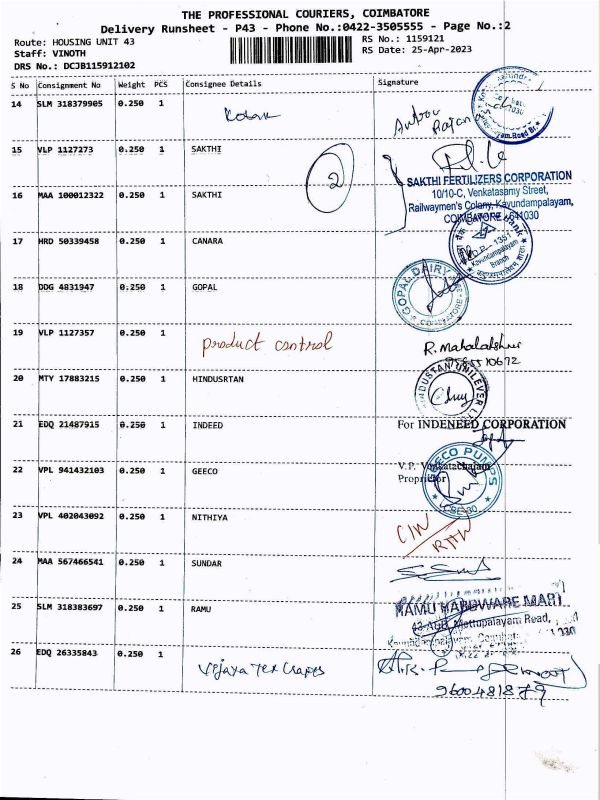 THE PROFESSIONAL COURIERS, COIMBATORE
Delivery Runsheet - P43 - Phone No.:0422-3505555 - Page No.:2
Route: HOUSING UNIT 43 RS No.: 1159121
Staff: VINOTH RS Date: 25-Apr-2023
DRS No.: DCJB115912102
S No Consignment No Weight PCS Consignee Details Signature
14 SLM 318379905 0.250 1 Kotak
15 VLP 1127273 0.250 1 SAKTHI
2
SAKTHI FERTILIZERS CORPORATION
16 MAA 100012322 0.250 1 SAKTHI 10/10-C, Venkatasamy Street,
Railwaymen's Colony, Kavundampalayam,
COIMBATORE - 641030
17 HRD 50339458 0.250 1 CANARA
Kavundampalayam
Branch
18 DDG 4831947 0.250 1 GOPAL GOPAL DAIRY
COIMBATORE
19 VLP 1127357 0.250 1 product control R. Mahalakshmi
20 MTY 17883215 0.250 1 HINDUSRTAN HINDUSTAN UNILEVER
21 EDQ 21487915 0.250 1 INDEED For INDENEED CORPORATION
22 VPL 941432103 0.250 1 GEECO GEECO PUMPS
V.P. Venkatachalam
Proprietor
CBE-30
23 VPL 402043092 0.250 1 NITHIYA
24 MAA 567466541 0.250 1 SUNDAR
25 SLM 318383697 0.250 1 RAMU RAMU HARDWARE MART
Mettupalayam Road,
26 EDQ 26335843 0.250 1 Vijaya Tex Crapes
9600481879